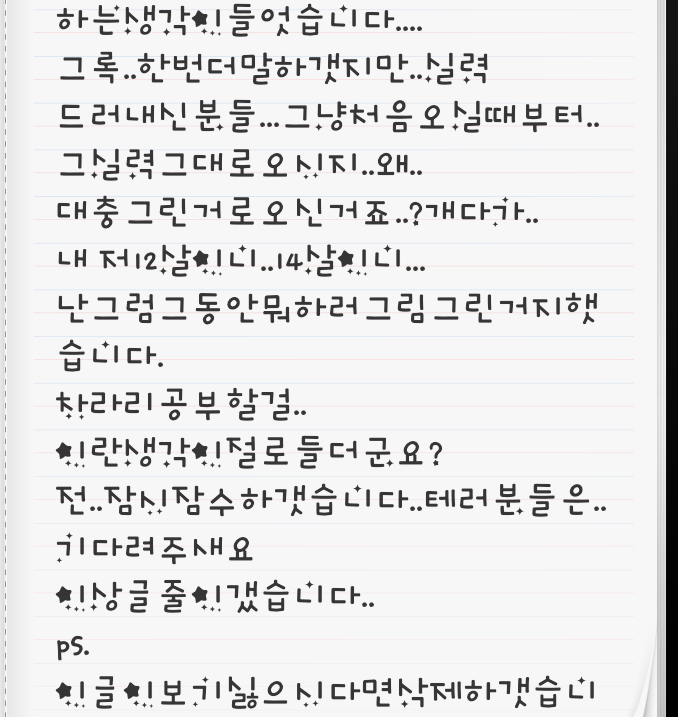 하는생각이들엇습니다....
그록..한번더말하갯지만..실력
드러내신분들...그냥처음오실때부터..
그실력그대로오시지..왜..
대충그린거로오신거죠..?개다가..
내저12살이니..14살이니...
난그럼그동안뭐하러그림그린거지했
습니다.
차라리공부할걸..
이란생각이절로들더군요?
전..잠시잠수하갯습니다..테러분들은..
기다려주새요
이상글줄이갰습니다..
ps.
이글이보기싫으시다면삭제하갯습니